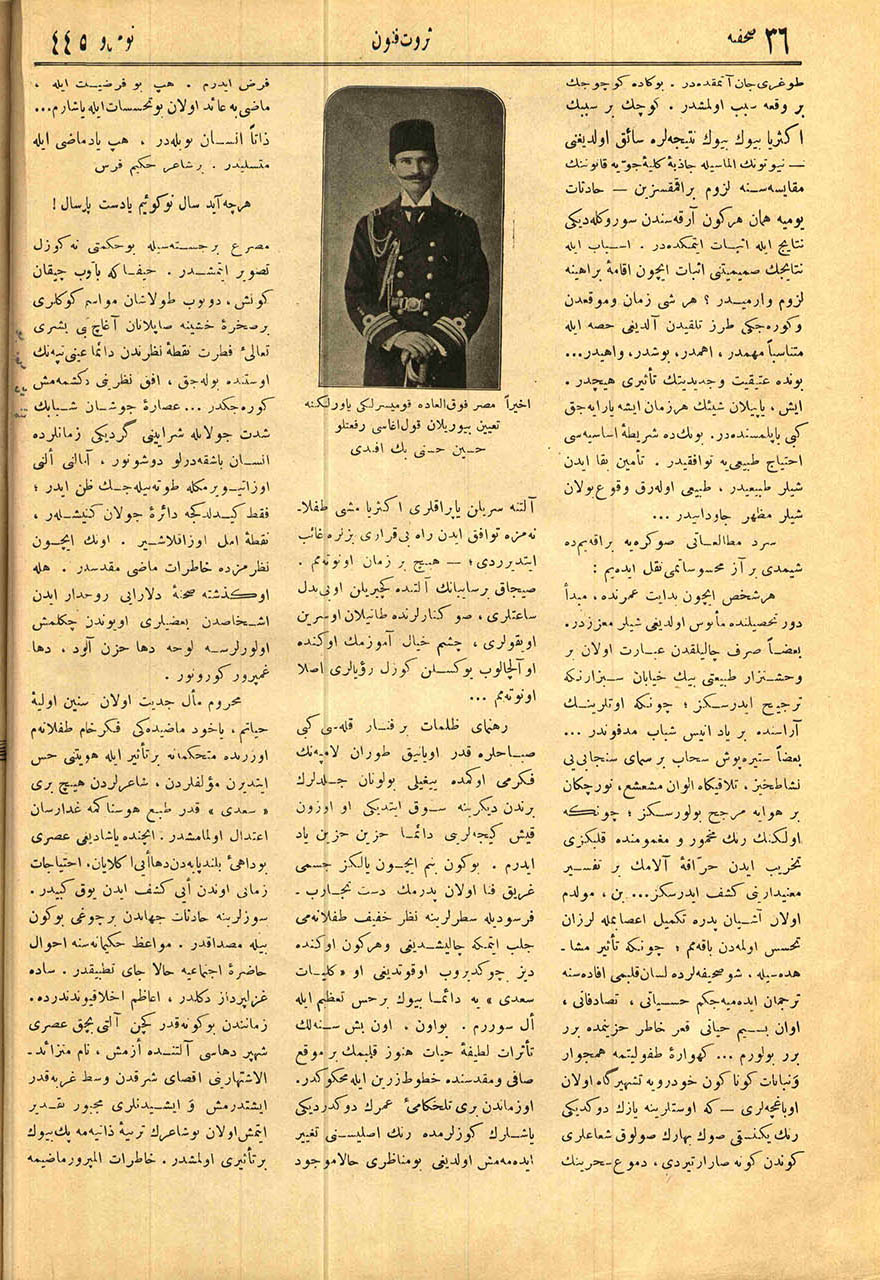 صحفه ٣٦
ثروت فنون
نومرو ٤٤٥
طوغری جان آتمقده‌در . بوكاده كوچوجك
بر وقعه سبب اولمشدر . كوچك بر سببك
اكثریا بیوك بیوك نتیجه‌لره سائق اولدیغنی
— نیوتونك الماسیله جاذبۀ كلیۀ جویه قانوننك
مقایسه‌سنه لزوم براقمقسزین — حادثات
یومیه همان هركون آرقه‌سندن سوروكله‌دیكی
نتایج ایله اثبات ایتمكده‌در . اسباب ایله
نتایجك صمیمیتنی اثبات ایچون اقامۀ براهینه
لزوم وارمیدر ؟ هر شی زمان وموقعدن
وكوره‌جكی طرز تلقیدن آلدیغی حصه ایله
متناسباً مهمدر ، اهمدر ، بوشدر ، واهیدر...
بونده عتیقیت وجدیدیتك تأثیری هیچدر .
ایش ، یاپیلان شیئك هر زمان ایشه یارایه‌جق
كبی یاپلمسنده‌در . بونك‌ده شریطۀ اساسیه‌سی
احتیاج طبیعی‌یه توافقیدر . تأمین بقا ایدن
شیلر طبیعیدر ، طبیعی اوله‌رق وقوع بولان
شیلر مظهر جاودانیدر ...
سرد مطالعاتی صوكره‌یه براقه‌یم‌ده
شیمدی بر آز محسوساتمی نقل ایده‌یم :
هر شخص ایچون بدایت عمرنده ، مبدأ
دور تحصیلنده مأنوس اولدیغی شیلر معززدر.
بعضاً صرف چالیلقدن عبارت اولان بر
وحشتزار طبیعتی بیك خیابان سبزارنكه
ترجیح ایدرسكز ؛ چونكه اوتلرینك
آراسنده بر یاد انیس شباب مدفوندر ...
بعضاً ستره‌پوش سحاب بر سمای سنجابی‌یی
نشاطخیز ، تلاقیكاه الوان مشعشع ، نورچكان
بر هوایه مرجح بولورسكز ؛ چونكه
اولكنك رنك مخمور و مغمومنده قلبكزی
تخریب ایدن حراقۀ آلامك بر تفسیر
معنیدارینی كشف ایدرسكز... بن ، مولدم
اولان آشیان پدره تكمیل اعصابمله لرزان
تحسس اولمه‌دن باقه‌مم ؛ چونكه تأثیر مشا-
هده‌سیله ، شو صحیفه‌لرده لسان قلبمی افاده‌سنه
ترجمان ایده‌میه‌جكم حسیاتی ، تصادفاتی ،
اوان بسیم حیاتی قعر خاطر حزینمده برر
برر بولورم ... كهوارۀ طفولیتمه همجوار
ونباتات كوناكون خودرویه تشهیركاه اولان
اوباغچه‌لری — كه اوستلرینه یازك دوكدیكی
رنك یكنسقی صوك بهارك صولوق شعاعلری
كوندن كونه صارارتیردی ، دموع سحرینك
اخیراً مصر فوق‌العاده قومیسرلكی یاورلكنه
تعیین بیوریلان قول‌اغاسی رفعتلو
حسین حسنی بك افندی
آلتنه سریلن یاپراقلری اكثریا مشی طفلا-
نه‌مزه توافق ایدن راه بی‌قراری بزلره غائب
ایتدیرردی ؛ — هیچ بر زمان اونوته‌مم .
صیجاق بر سایبانك آلتنده كچیریلن اوبی‌بدل
ساعتلری ، صو كنارلرنده طاتیلان اوسرین
اویقولری ، چشم خیال آموزمك اوكنده
اوآلچالوب یوكسلن كوزل رؤیالری اصلا
اونوته‌مم ...
رهنمای ظلمات بر فنار قله‌سی كبی
صباحلره قدر اویانیق طوران لامپه‌نك
فكرمی اوكمده ییغیلی بولونان جلدلرك
برندن دیكرینه سوق ایتدیكی او اوزون
قیش كیجه‌لرینی دائما حزین حزین یاد
ایدرم . بوكون بنم ایچون یالكز جسمی
غریق فنا اولان پدرمك دست تجارب-
فرسودیله سطرلرینه نظر خفیف طفلانه‌می
جلب ایتمكه چالیشدیغی وهركون اوكنده
دیز چوكدیروب اوقوتدیغی او «كلیات
سعدی» یه دائما بیوك بر حس تعظیم ایله
أل سوررم . بواون ، اون بش سنه‌لك
تأثرات لطیفۀ حیات هنوز قلبمك بر موقع
صافی ومقدسنده خطوط زرین ایله محكوكدر.
اوزماندن بری تلخكامئ عمرك دوكدردیكی
یاشلرك كوزلرمده رنك اصلیسنی تغییر
ایده‌مه‌مش اولدیغی بومناظری حالا موجود
فرض ایدرم . هپ بو فرضیت ایله ،
ماضی‌یه عائد اولان بوتحسسات ایله یاشارم...
ذاتاً انسان بویله‌در ، هپ یاد ماضی ایله
متسلیدر . بر شاعر حكیم فرس
هرچه آید سال نو كوئیم یادست پارسال !
مصرع برجسته‌سیله بوحكمتی نه كوزل
تصویر ایتمشدر . حیفاكه باتوب چیقان
كونش ، دونوب طولاشان مواسم كوكلری
بر صخرۀ خشینه صاپلانان آغاج بی بشری
تعالئ فطرت نقطۀ نظرندن دائما عینی تپه‌نك
اوستنده بوله‌جق ، افق نظرینی دكشمه‌مش
كوره‌جكدر ... عصارۀ جوشان شبابك
شدت جولانله شرایینی كردیكی زمانلرده
انسان باشقه‌درلو دوشونور ، آتالنی ألنی
اوزاتیویرمكله طوته‌بیله‌جك ظن ایدر ؛
فقط كیدلدكجه دائرۀ جولان كنیشله‌ر ،
نقطۀ امل اوزاقلاشیر . اونك ایچون
نظرمزده خاطرات ماضی مقدسدر . هله
اوكذشته صحنۀ دلارایی روحدار ایدن
اشخاصدن بعضیلری اویوندن چكلمش
اولورلرسه لوحه دها حزن آلود ، دها
غمپرور كورونور .
محروم مآل جدیت اولان سنین اولیۀ
حیاتم ، یاخود ماضیده‌كی فكر خام طفلانه‌م
اوزرنده متحكمانه بر تأثیر ایله هویتنی حس
ایتدیرن مؤلفلردن ، شاعرلردن هیچ بری
«سعدی» قدر طبع هوسناكمه غدارسان
اعتدال اولمامشدر . ایچنده یاشادیغی عصری
بوداهئ بلندپایه‌دن دها أیی اكلایان ، احتیاجات
زمانی اوندن أیی كشف ایدن یوق كبیدر .
سوزلرینه حادثات جهاندن برچوغی بوكون
بیله مصداقدر . مواعظ حكیمانه‌سنه احوال
حاضرۀ اجتماعیه حالا جای تطبیقدر . ساده
غزلپرداز دكلدر ، اعاظم اخلاقیوندندرده.
زمانندن بوكونه‌قدر كچن آلتی یچق عصری
شهپر دهاسی آلتنده أزمش ، نام متزائد-
الاشتهارینی اقصای شرقدن وسط غربه‌قدر
ایشتدرمش و ایشیدنلری مجبور تقدیر
ایتمش اولان بوشاعرك تربیۀ ذاتیه‌مه پك بیوك
بر تأثیری اولمشدر . خاطرات المپرور ماضیمه